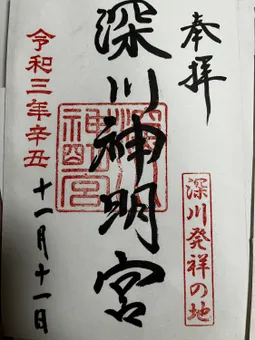 奉拝
深川発祥の地
深川神明宮
深川神明宮
令和三年辛丑
十一月十一日